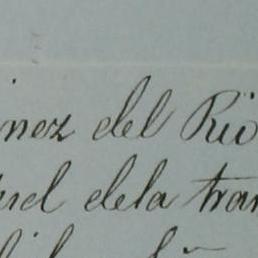 inez del Rio
tud dela tran